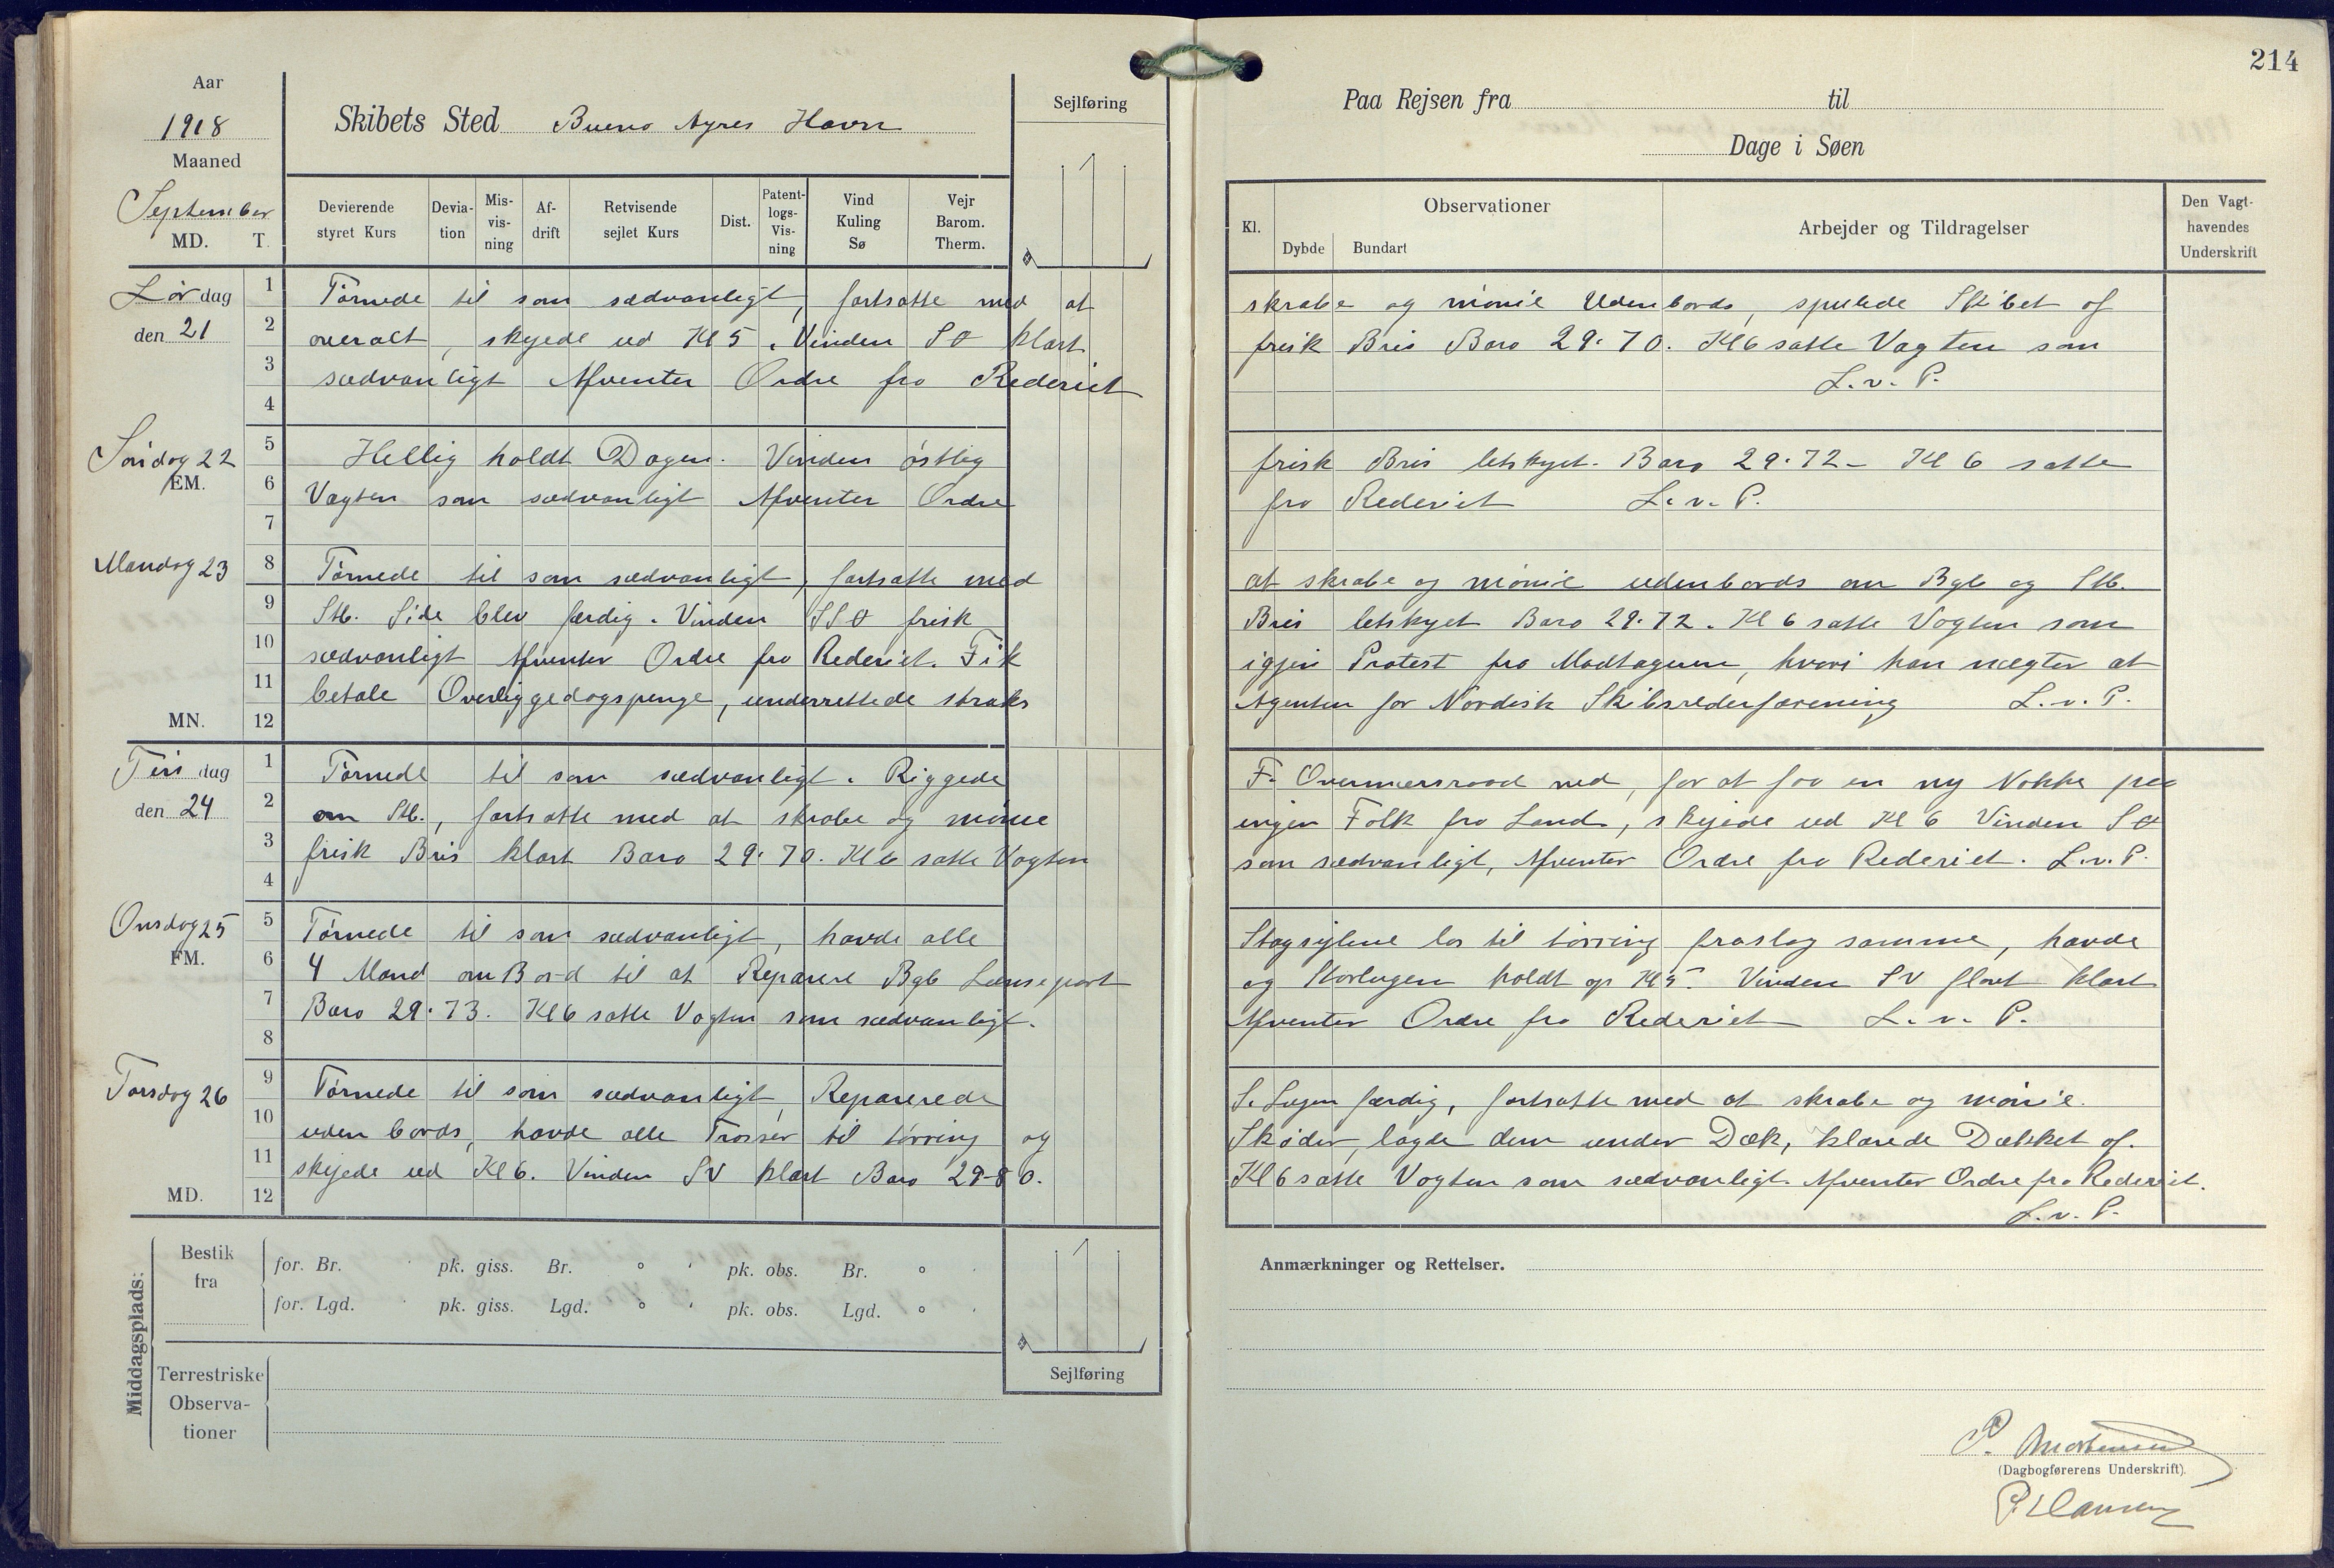 Aar
1918
Maaned
September
MD. T.
Skibets Sted Bueno Ayres Havn
Sejlføring
Devierende styret Kurs
Devia-tion
Mis-vis-ning
Af-drift
Retvisende sejlet Kurs
Dist.
Patent-logs-Vis-ning
Vind Kuling Sø
Vejr Barom. Therm.
214
Paa Rejsen fra til
Dage i Søen
Kl.
Observationer
Dybde Bundart
Arbejder og Tildragelser
Den Vagt-havendes Underskrift
Lørdag den 21
1 Tørnede til som sædvanligt, fortsatte med at skrabe og mönie Udenbords, spulede Skibet af
2 overalt, skyede ud Kl 5. Vinden SO klart frisk Bris Baro 29.70. Kl 6 satte Vagten som
3 sædvanligt Afventer Ordre fra Rederiet L.v.P.
4
Søndag 22
EM.
5 Hellig holdt Dagen. Vinden østlig frisk Bris letskyet. Baro 29.72 - Kl 6 satte
6 Vagten som sædvanligt Afventer Ordre fra Rederiet L.v.P.
7
Mandag 23
8 Tørnede til som sædvanligt, fortsatte med at skrabe og mönie udenbords om Bgb og Stb.
9 Stb. Side blev færdig. Vinden SSO frisk Bris letskyet Baro 29.72. Kl 6 satte Vagten som
10 sædvanligt Afventer Ordre fra Rederiet. Fik igjen Protest fra Modtageren, hvori han nægter at
11 betale Overliggedagspenge, underrettede straks Agenten for Nordisk Skibsrederforening L.v.P.
MN. 12
Tirsdag den 24
1 Tørnede til som sædvanligt. Riggede F. Overmærsraad ned, for at faa en ny Nokke paa
2 om Stb., fortsatte med at skrabe og mönie ingen Folk fra Land, skejede ud Kl 6 Vinden SO
3 frisk Bris klart Baro 29.70. Kl 6 satte Vagten som sædvanligt, Afventer Ordre fra Rederiet. L.v.P.
4
Onsdag 25
FM.
5 Tørnede til som sædvanligt, havde alle Stagsejlene los til tørring fraslog samme, havde
6 4 Mand om Bord til at Reparere Bgb Lænseport og Storlugen holdt op Kl 5. Vinden SV flovt klart
7 Baro 29.73. Kl 6 satte Vagten som sædvanligt. Afventer Ordre fra Rederiet L.v.P.
8
Torsdag 26
9 Tørnede til som sædvanligt, Reparerede S. Lugen færdig, fortsatte med at skrabe og mönie
10 uden bords, havde alle Trosser til tørring og Skøder, lagde dem under Dæk, klarede Dækket af.
11 skejede ud Kl 6. Vinden SV klart Baro 29-80. Kl 6 satte Vagten som sædvanligt. Afventer Ordre fra Rederiet.
MD. 12 L.v.P.
Middagsplads:
Bestik fra
for. Br. pk. giss. Br. ° ' pk. obs. Br. ° '
for. Lgd. pk. giss. Lgd. ° ' pk. obs. Lgd. ° '
Terrestriske Observa-tioner
Sejlføring
Anmærkninger og Rettelser.
P. Mortensen
(Dagbogførerens Underskrift).
P. Hansen